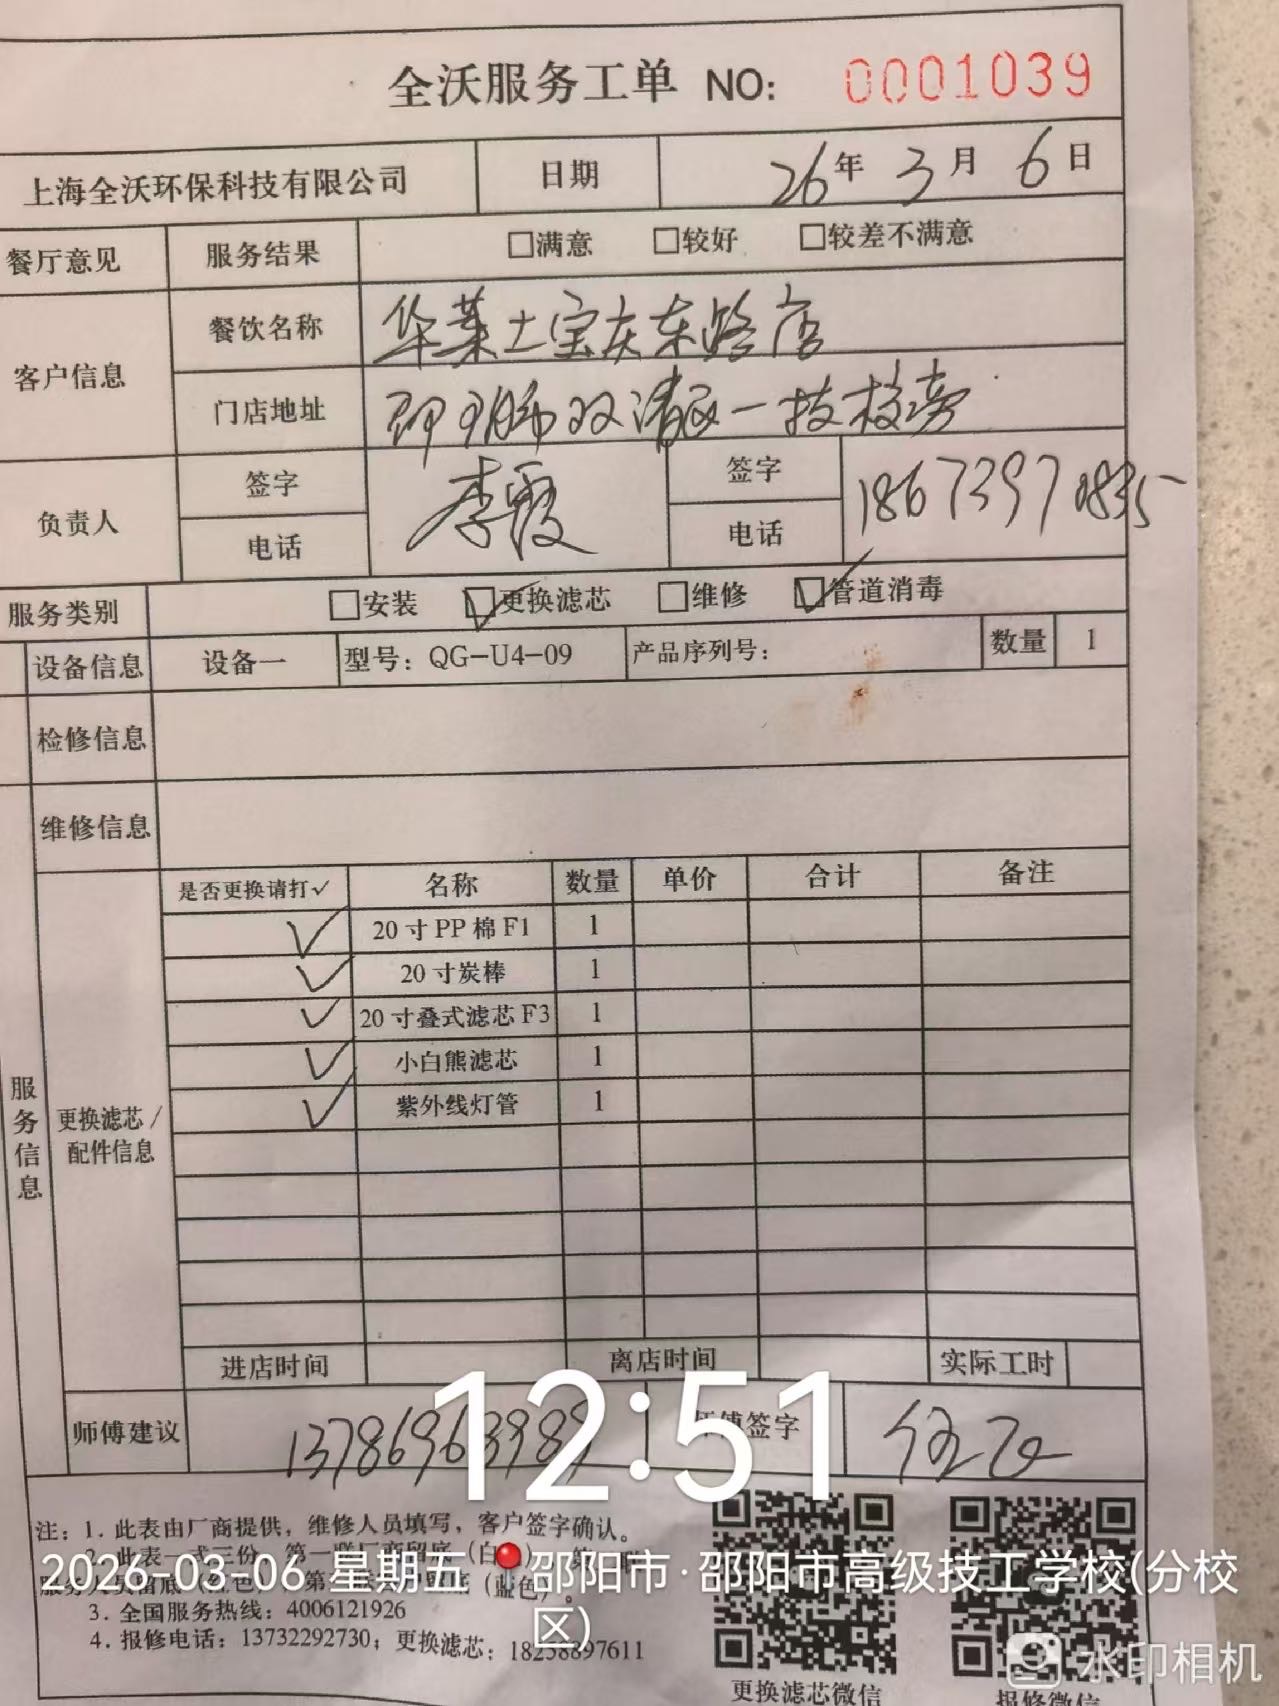 全沃服务工单 NO: 0001039
上海全沃环保科技有限公司 日期 26年3月6日
餐厅意见 服务结果 □满意 □较好 □较差不满意
客户信息 餐饮名称 华莱士宝庆东路店
门店地址 邵阳市双清区一技校旁
负责人 签字 电话 李霞 签字 电话 18673970835
服务类别 □安装 ☑更换滤芯 □维修 ☑管道消毒
设备信息 设备一 型号：QG-U4-09 产品序列号： 数量 1
检修信息
维修信息
服务信息
更换滤芯/配件信息
是否更换请打✓ 名称 数量 单价 合计 备注
✓ 20寸PP棉F1 1
✓ 20寸炭棒 1
✓ 20寸叠式滤芯F3 1
✓ 小白熊滤芯 1
✓ 紫外线灯管 1
进店时间 离店时间 实际工时
师傅建议 师傅签字
12:51
注：1. 此表由厂商提供，维修人员填写，客户签字确认。
2. 此表一式三份，第一联厂商留底（白
（蓝色）。
3. 全国服务热线：4006121926
4. 报修电话：13732292730；更换滤芯：18258897611
2026-03-06 星期五 邵阳市·邵阳市高级技工学校(分校
区)
更换滤芯微信 报修微信
水印相机